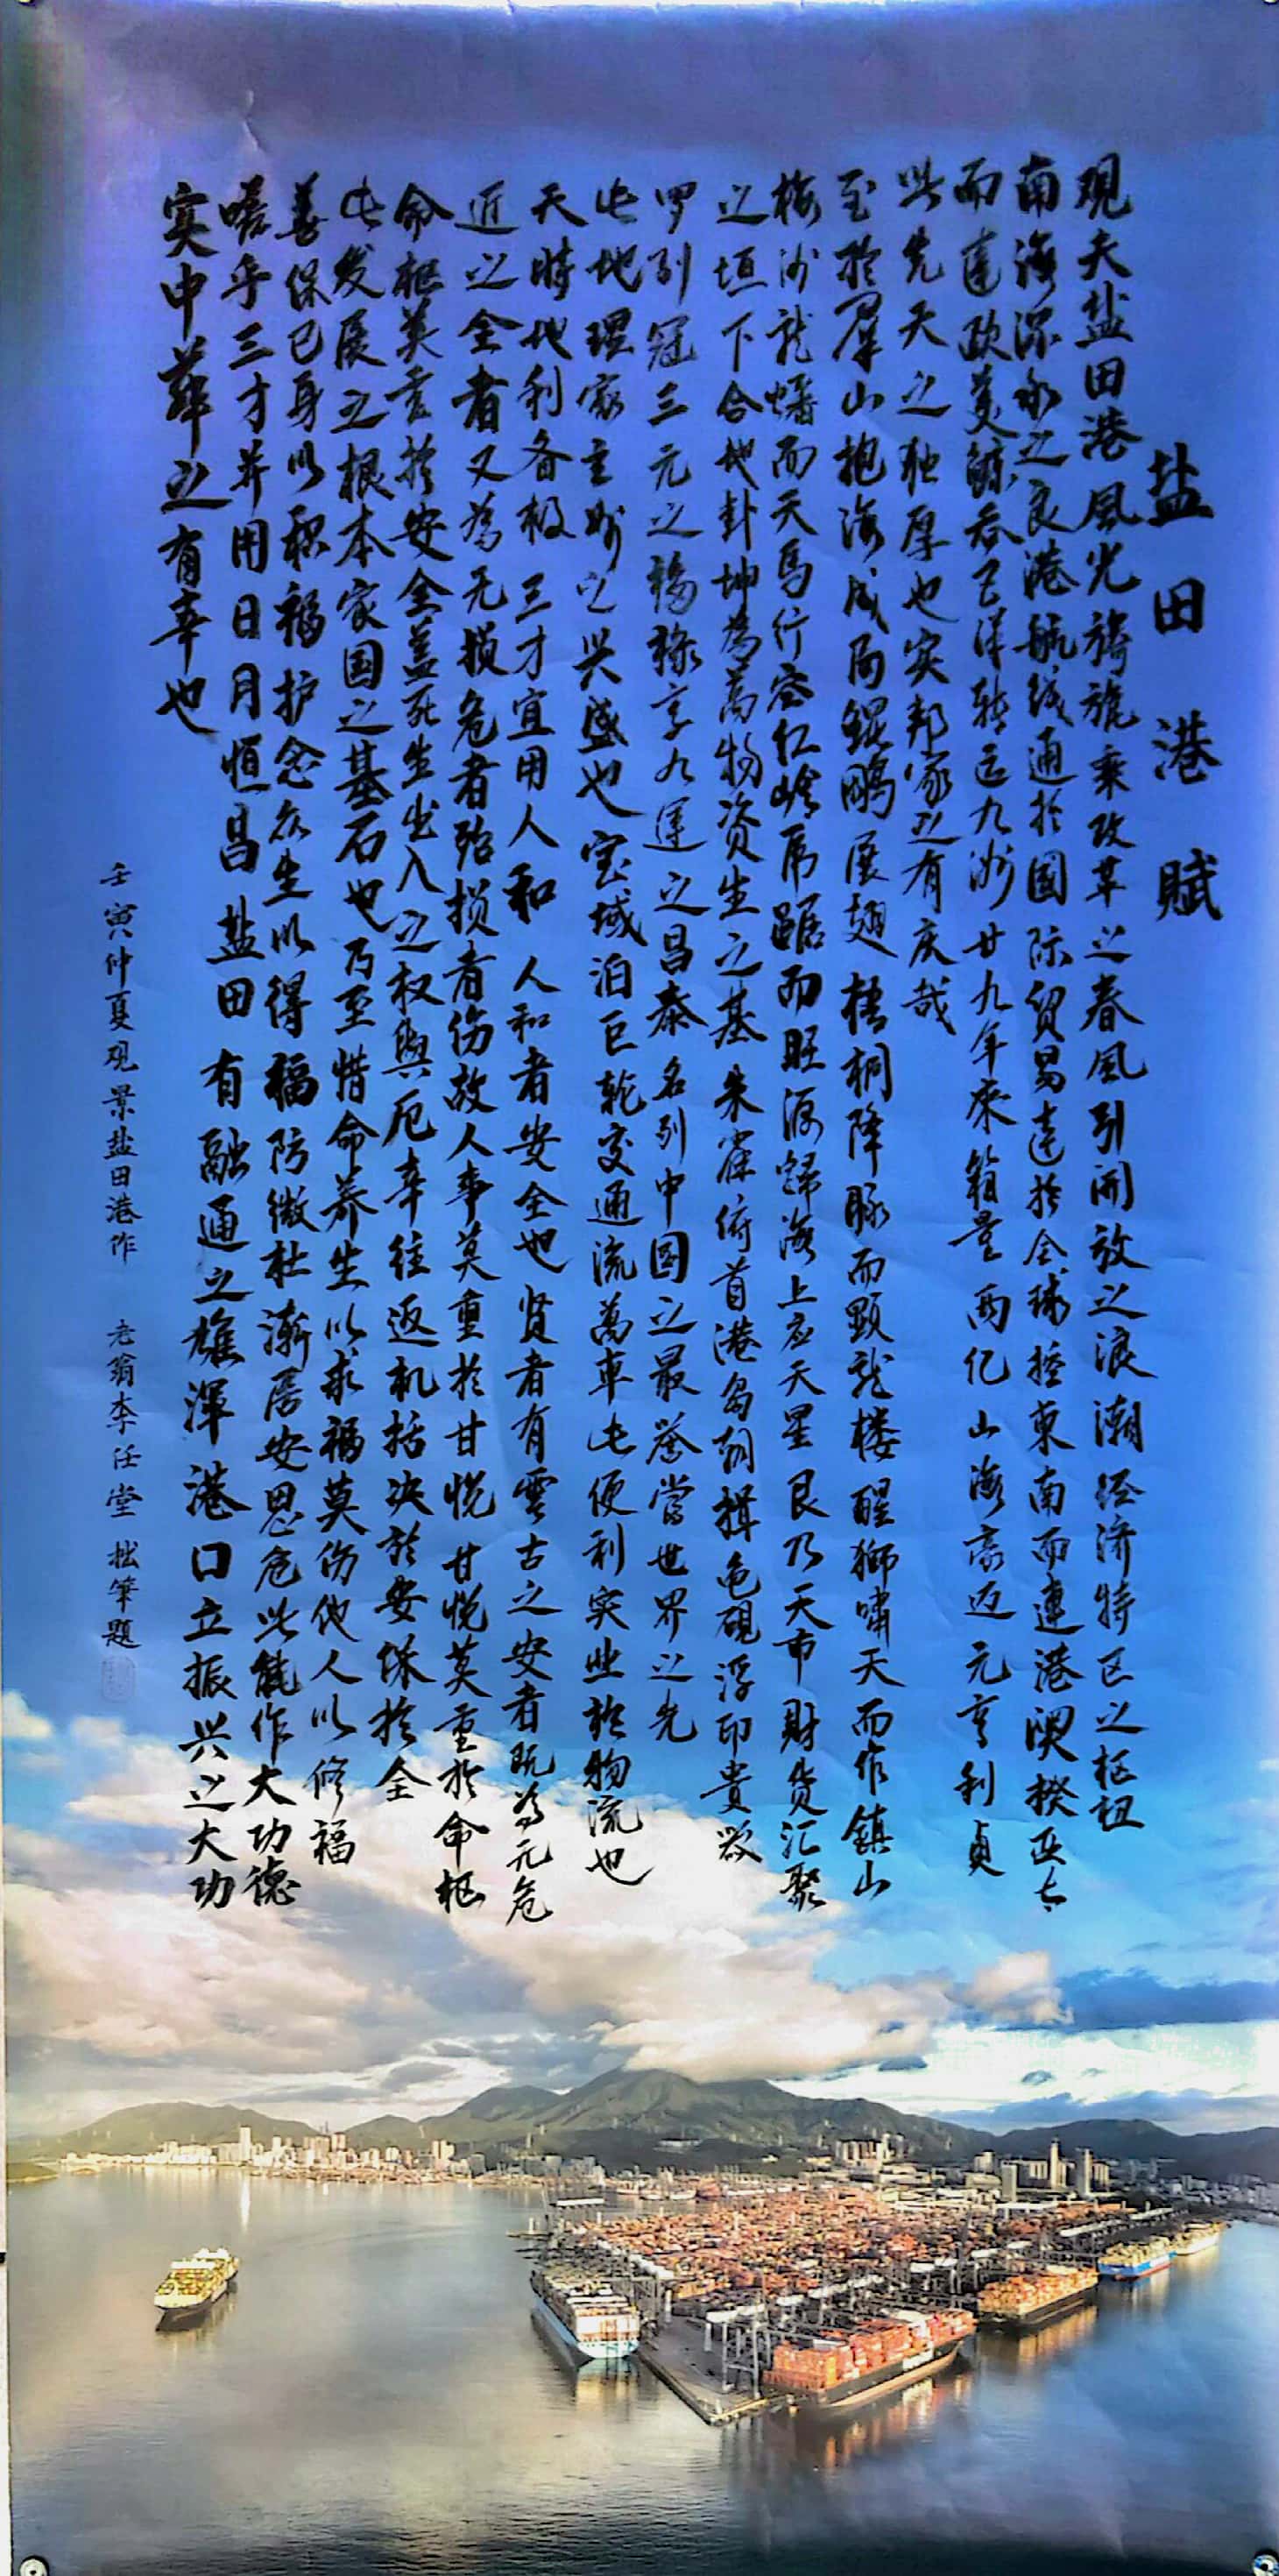 盐田港赋
观夫盐田港风光旖旎乘改革之春风引开放之浪潮经济特区之枢纽
南海深水之良港航线通於国际贸易达於全球控东南而连港澳揆亚太
而达欧美鲸吞四洋转运九洲廿九年来箱量两亿山海豪迈元亨利贞
此先天之独厚也实邦家之有庆哉
至於群山抱海成局鲲鹏展翅梧桐降脉而显龙楼醒狮啸天而作镇山
梅沙龙蟠而天马行空红岭虎踞而旺源归海上应天星艮乃天市财货汇聚
之垣下合地卦坤为万物资生之基朱雀俯首港岛朝揖龟砚浮印贵
罗列冠三元之福禄享九运之昌泰名列中国之最誉当世界之先
此地理家主财之兴盛也宝域泊巨轮交通流万车此便利实业於物流也
天时地利备极三才宜用人和人和者安全也贤者有云古之安者既为无危
近之全者又为无损危者殆损者伤故人事莫重於甘悦甘悦莫重於命枢
命枢莫重於安全盖死生出入之权与厄幸往返机括决於安保於全
此发展之根本家国之基石也乃至惜命养生以求福莫伤他人以修福
善保己身以积福护念众生以得福防微杜渐居安思危此能作大功德
嗟乎三才并用日月恒昌盐田有融通之雄浑港口立振兴之大功
实中华之有幸也
壬寅仲夏观景盐田港作 老翁李任堂拙笔题